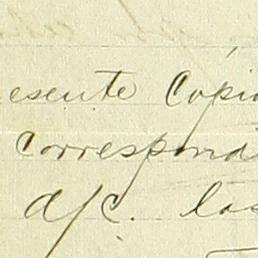 esente Copia
correspondi
a/c. las